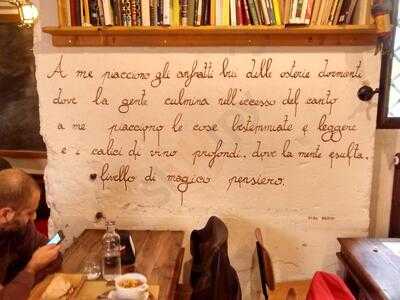 A me piacciono gli anfratti bui delle osterie dormienti
dove la gente culmina nell'eccesso del canto
a me piacciono le cose bestemmiate e leggere
e i calici di vino profondi, dove la mente esulta,
livello di magico pensiero.